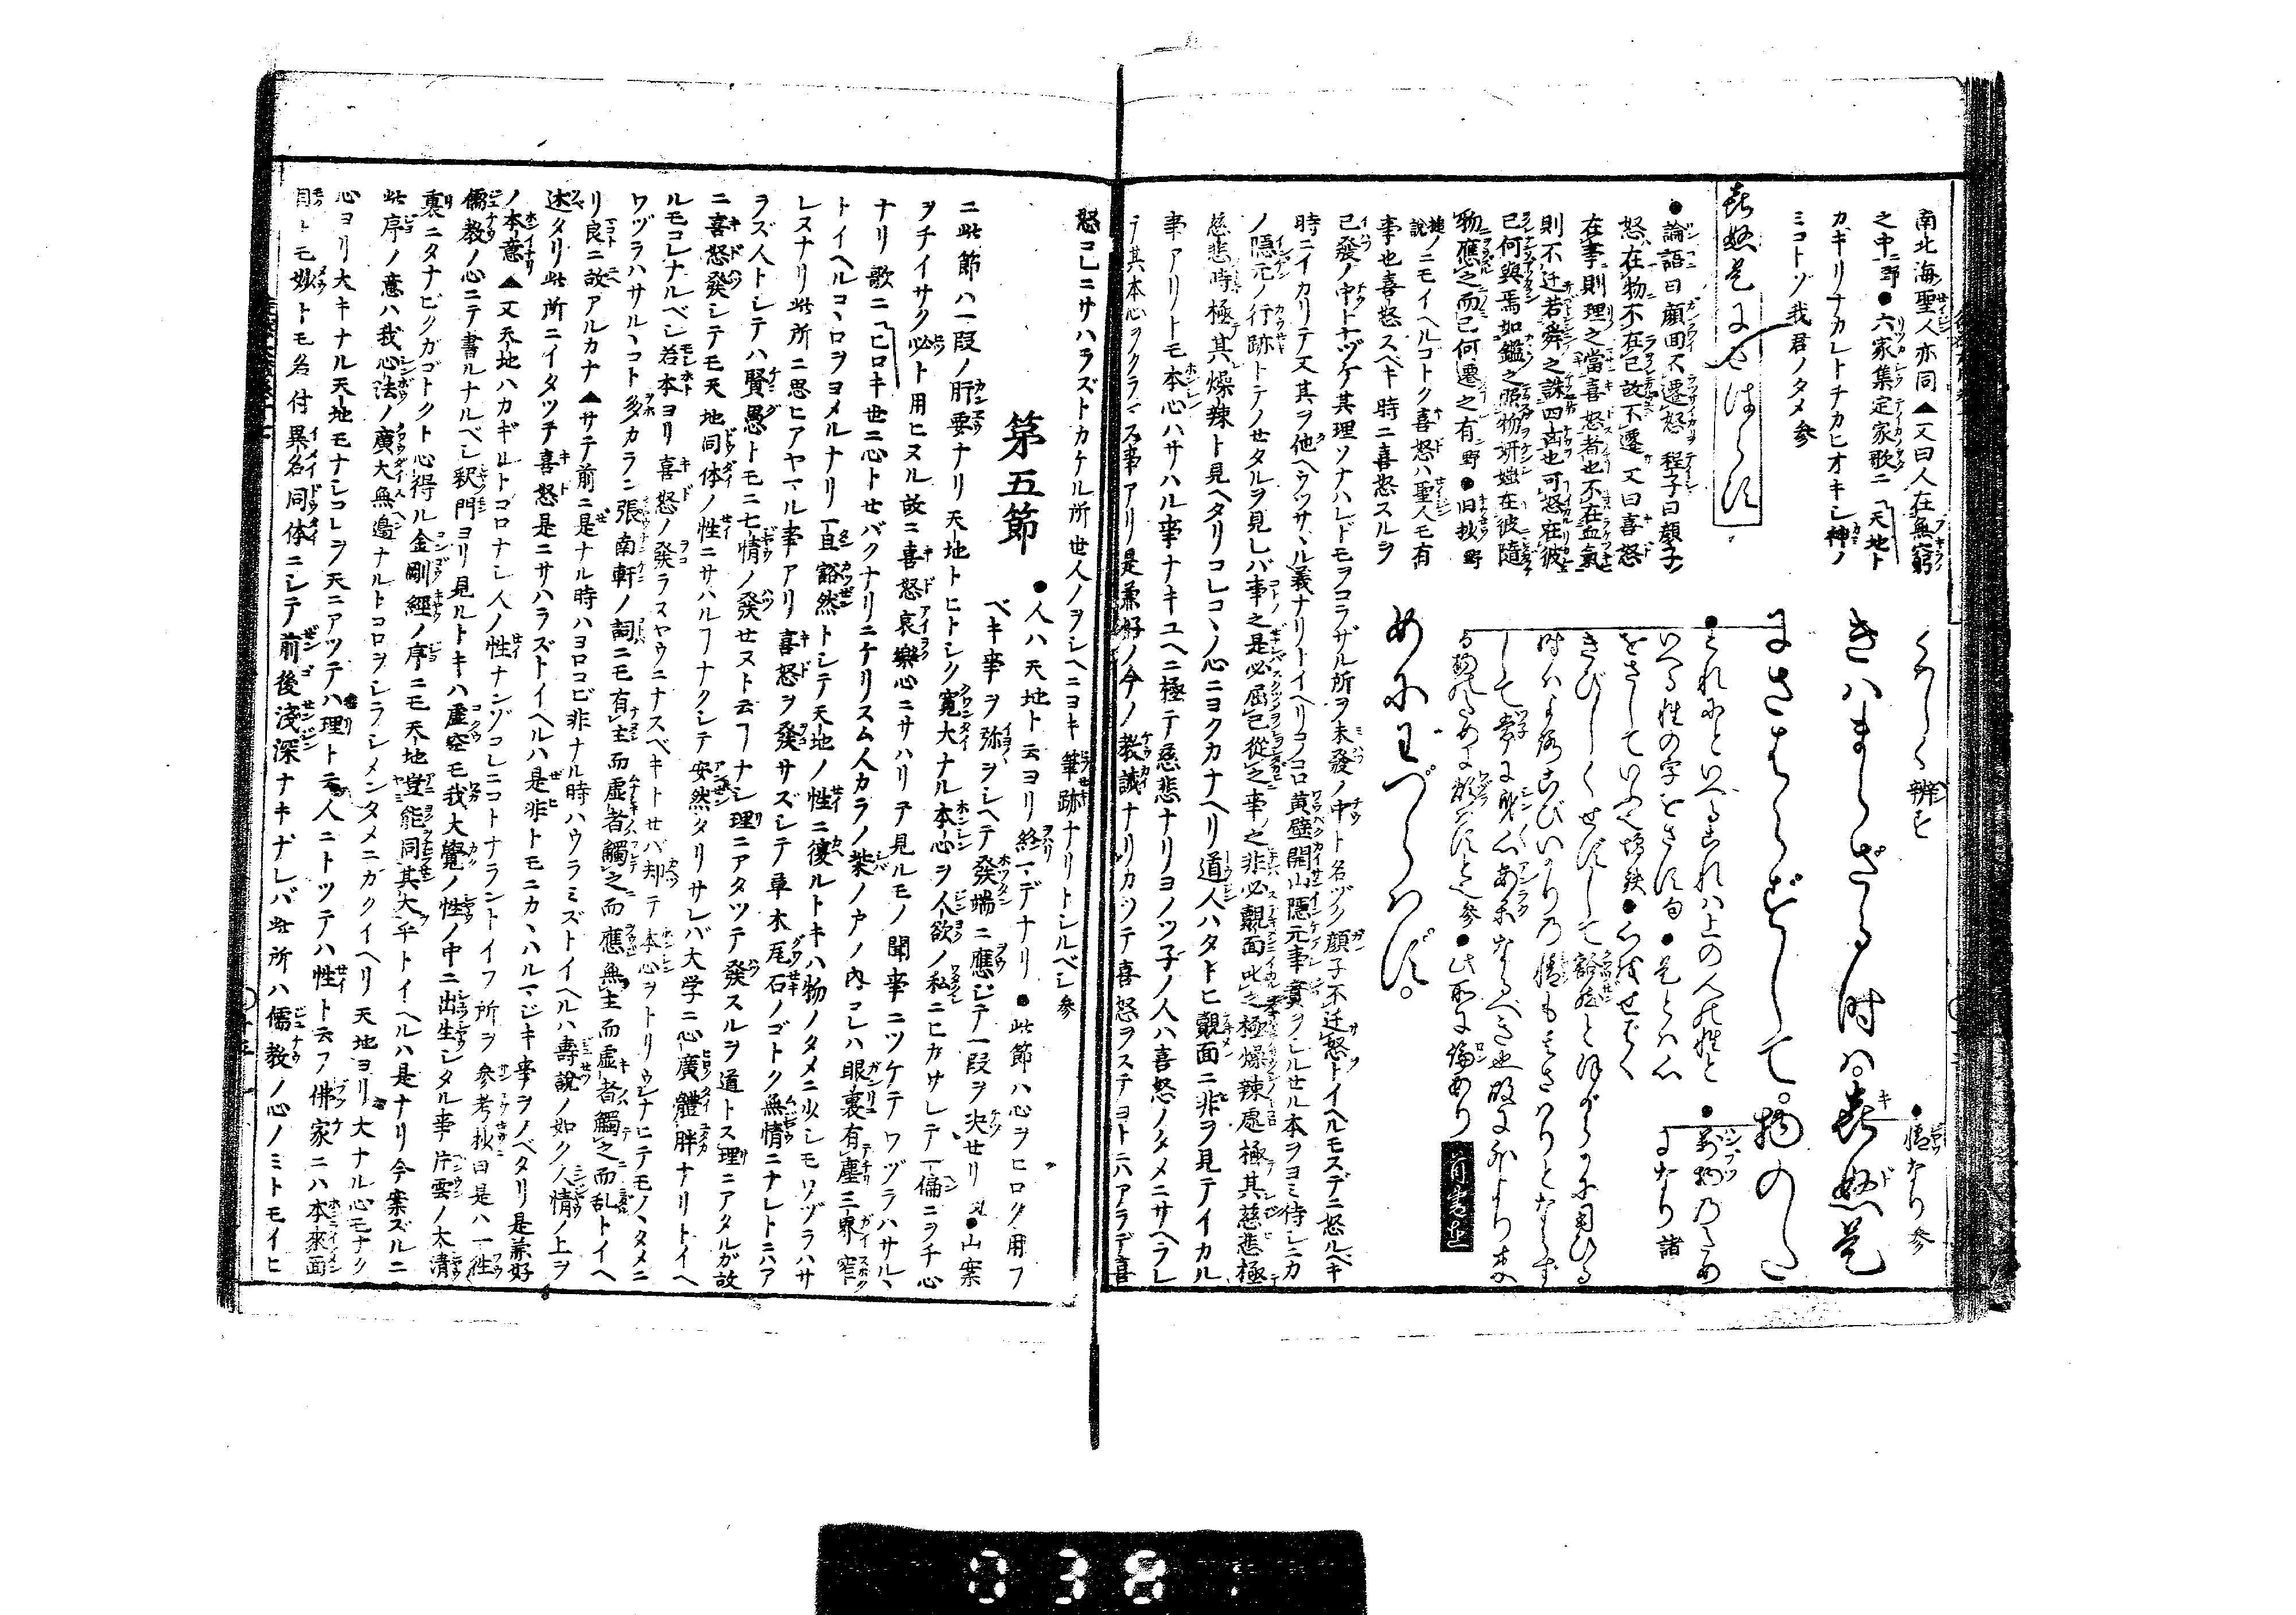 南北海聖人亦同▲又曰人在無窮
之中ニ野●六家集定家歌ニ天地ト
カギリナカレトチカヒオキシ神ノ
ミコトゾ我君ノタメ参
喜怒是にさはらず
●論語曰顔回不遷怒 程子曰顔子
怒在物不在己故不遷 又曰喜怒
在事則理之當喜怒者也不在血氣
則不迁若舜之誅四凶也可怒在彼
已何與焉如鑑之照物妍媸在彼隨
物應之而已何遷之有野●旧抄野
説ノニモイヘルコトク喜怒ハ聖人モ有
事也喜怒スベキ時ニ喜怒スルヲ
きハまらざる時ハ。喜怒是
にさはらずして。物のた
めにわづらはず。
●情なり参
●萬物乃ため
になり諸
已發ノ中ト名ヅケ其理ソナハレドモヲコラザル所ヲ未發ノ中ト名ヅク顔子不迁怒トイヘルモスデニ怒ルベキ
時ニイカリテ又其ヲ他ヘウツサヽル義ナリトイヘリコノコロ黄壁開山隠元事實ヲシルセル本ヲヨミ侍シニカ
ノ隠元ノ行跡トテノせタルヲ見レバ事之是必屈已從之事之非必觀面叱之極燥辣處極其慈悲極
慈悲時極其燥辣ト見ヘタリコレコヽノ心ニヨクカナヘリ道人ハタトヒ觀面ニ非ヲ見テイカル
事アリトモ本心ハサハル事ナキユヘニ極テ慈悲ナリヨノツ子ノ人ハ喜怒ノタメニサヘラレ
テ其本心ヲクラマス事アリ是兼好ノ今ノ教誡ナリカツテ喜怒ヲステヨトニハアラデ喜
怒コレニサハラズトカケル所世人ノヲシヘニヨキ筆跡ナリトシルベシ参
第五節
●人ハ天地ト云ヨリ終マデナリ●此節ハ心ヲヒロク用フ
ベキ事ヲ弥ヲシヘテ發端ニ應ジテ一段ヲ决せリ ●山案
ニ此節ハ一段ノ肝要ナリ天地トヒトシク寛大ナル本心ヲ人欲ノ私ニヒカサレテ一偏ニヲチ心
ヲチイサク必ト用ヒヌル故ニ喜怒哀樂心ニサハリテ見ルモノ聞事ニツケテワヅラハサルヽ
ナリ歌ニヒロキ世ニ心トせバクナリニケリスム人カラノ柴ノ戸ノ内コレハ眼裏有塵三界窄
トイヘルコヽロヲヨメルナリ一旦豁然トシテ天地ノ性ニ復ルトキハ物ノタメニ少シモワヅラハサ
レヌナリ此所ニ思ヒアヤマル事アリ喜怒ヲ發サズシテ草木瓦石ノゴトク無情ニナレトニハア
ラズ人トシテハ賢愚トモニ七情ノ發せヌト云フナシ理ニアタツテ發スルヲ道トス理ニアタルガ故
ニ喜怒發シテモ天地同体ノ性ニサハルフナクシテ安然タリサレバ大学ニ心廣體胖ナリトイヘ
ルモコレナルベシ若本ヨリ喜怒ノ發ラスヤウニナスベキトせバ却テ本心ヲトリウシナヒテモノヽタメニ
ワヅラハサルヽコト多カラン張南軒ノ詞ニモ有主而虚者觸之而應無主而虚者觸之而乱トイヘ
リ良ニ故アルカナ▲サテ前ニ是ナル時ハヨロコビ非ナル時ハウラミズトイヘルハ壽説ノ如ク人情ノ上ヲ
述タリ此所ニイタツテ喜怒是ニサハラズトイヘルハ是非トモニカヽハルマジキ事ヲノベタリ是兼好
ノ本意▲又天地ハカギルトコロナシ人ノ性ナンゾコレニコトナラントイフ所ヲ参考抄曰是ハ一往
儒教ノ心ニテ書ルナルベシ釈門ヨリ見ルトキハ虚空モ我大覺ノ性ノ中ニ出生シタル事片雲ノ太清
裏ニタナビクガゴトクト心得ル金剛經ノ序ニモ天地豈能同其大乎トイヘルハ是ナリ今案ズルニ
此序ノ意ハ我心法ノ廣大無邊ナルトコロヲシラシメンタメニカクイヘリ天地ヨリ大ナル心モナク
心ヨリ大キナル天地モナシコレヲ天ニアツテハ理ト云人ニトツテハ性ト云フ佛家ニハ本來面
目トモ妙トモ名付異名同体ニシテ前後淺深ナキナレバ此所ハ儒教ノ心ノミトモイヒ
038